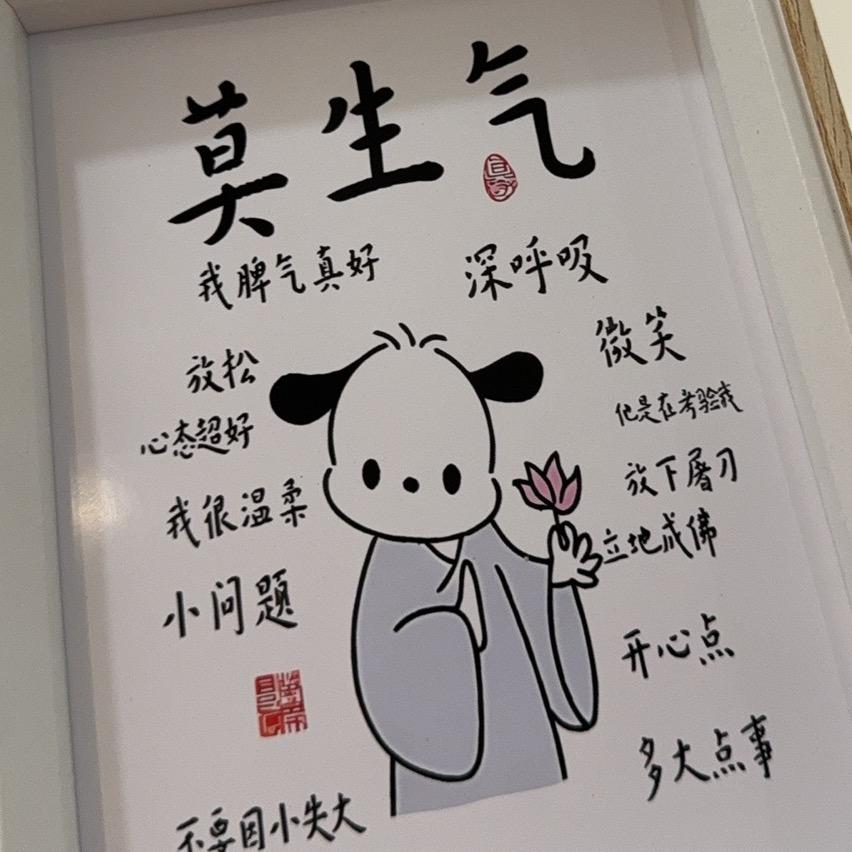 莫生气
我脾气真好
深呼吸
放松
心态超好
我很温柔
小问题
不要因小失大
微笑
他是在考验我
放下屠刀
立地成佛
开心点
多大点事